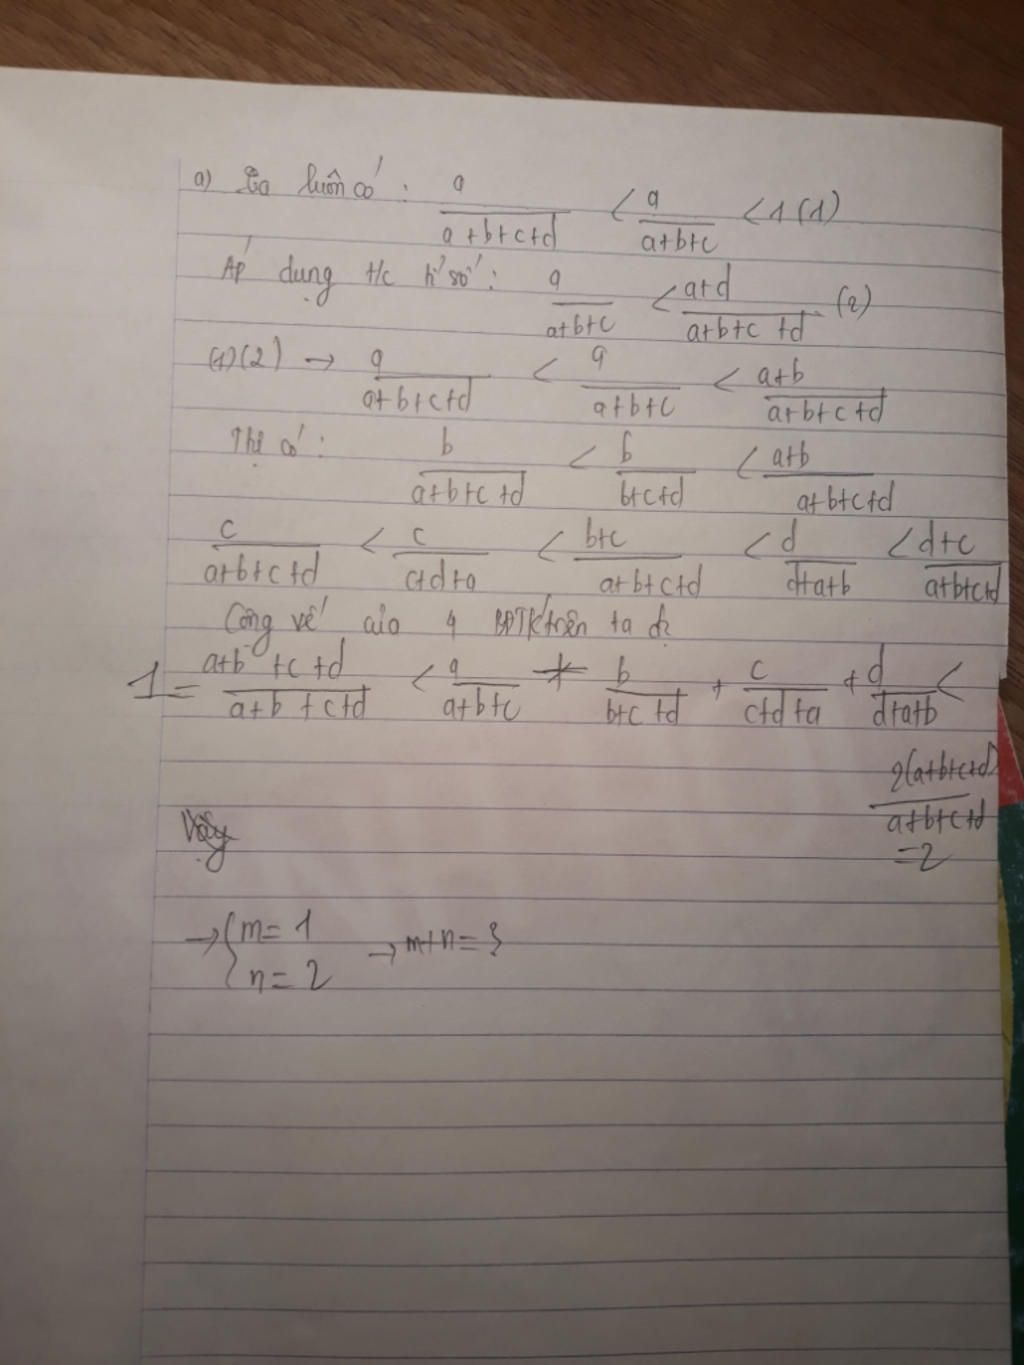 a) Ta luôn có: a/(a+b+c+d) < a/(a+b+c) < 1 (1)
Áp dụng t/c tỉ số: a/(a+b+c) < (a+d)/(a+b+c+d) (2)
(1)(2) → a/(a+b+c+d) < a/(a+b+c) < (a+b)/(a+b+c+d)
có: b/(a+b+c+d) < b/(b+c+d) < (a+b)/(a+b+c+d)
c/(a+b+c+d) < c/(c+d+a) < (b+c)/(a+b+c+d) < d/(d+a+b) < (d+c)/(a+b+c+d)
Cộng vế của 4 BĐT trên ta đc
1 = (a+b+c+d)/(a+b+c+d) < a/(a+b+c) + b/(b+c+d) + c/(c+d+a) + d/(d+a+b) <
2(a+b+c+d)/(a+b+c+d)
=2
Vậy
→ { m = 1
n = 2 → m+n = 3